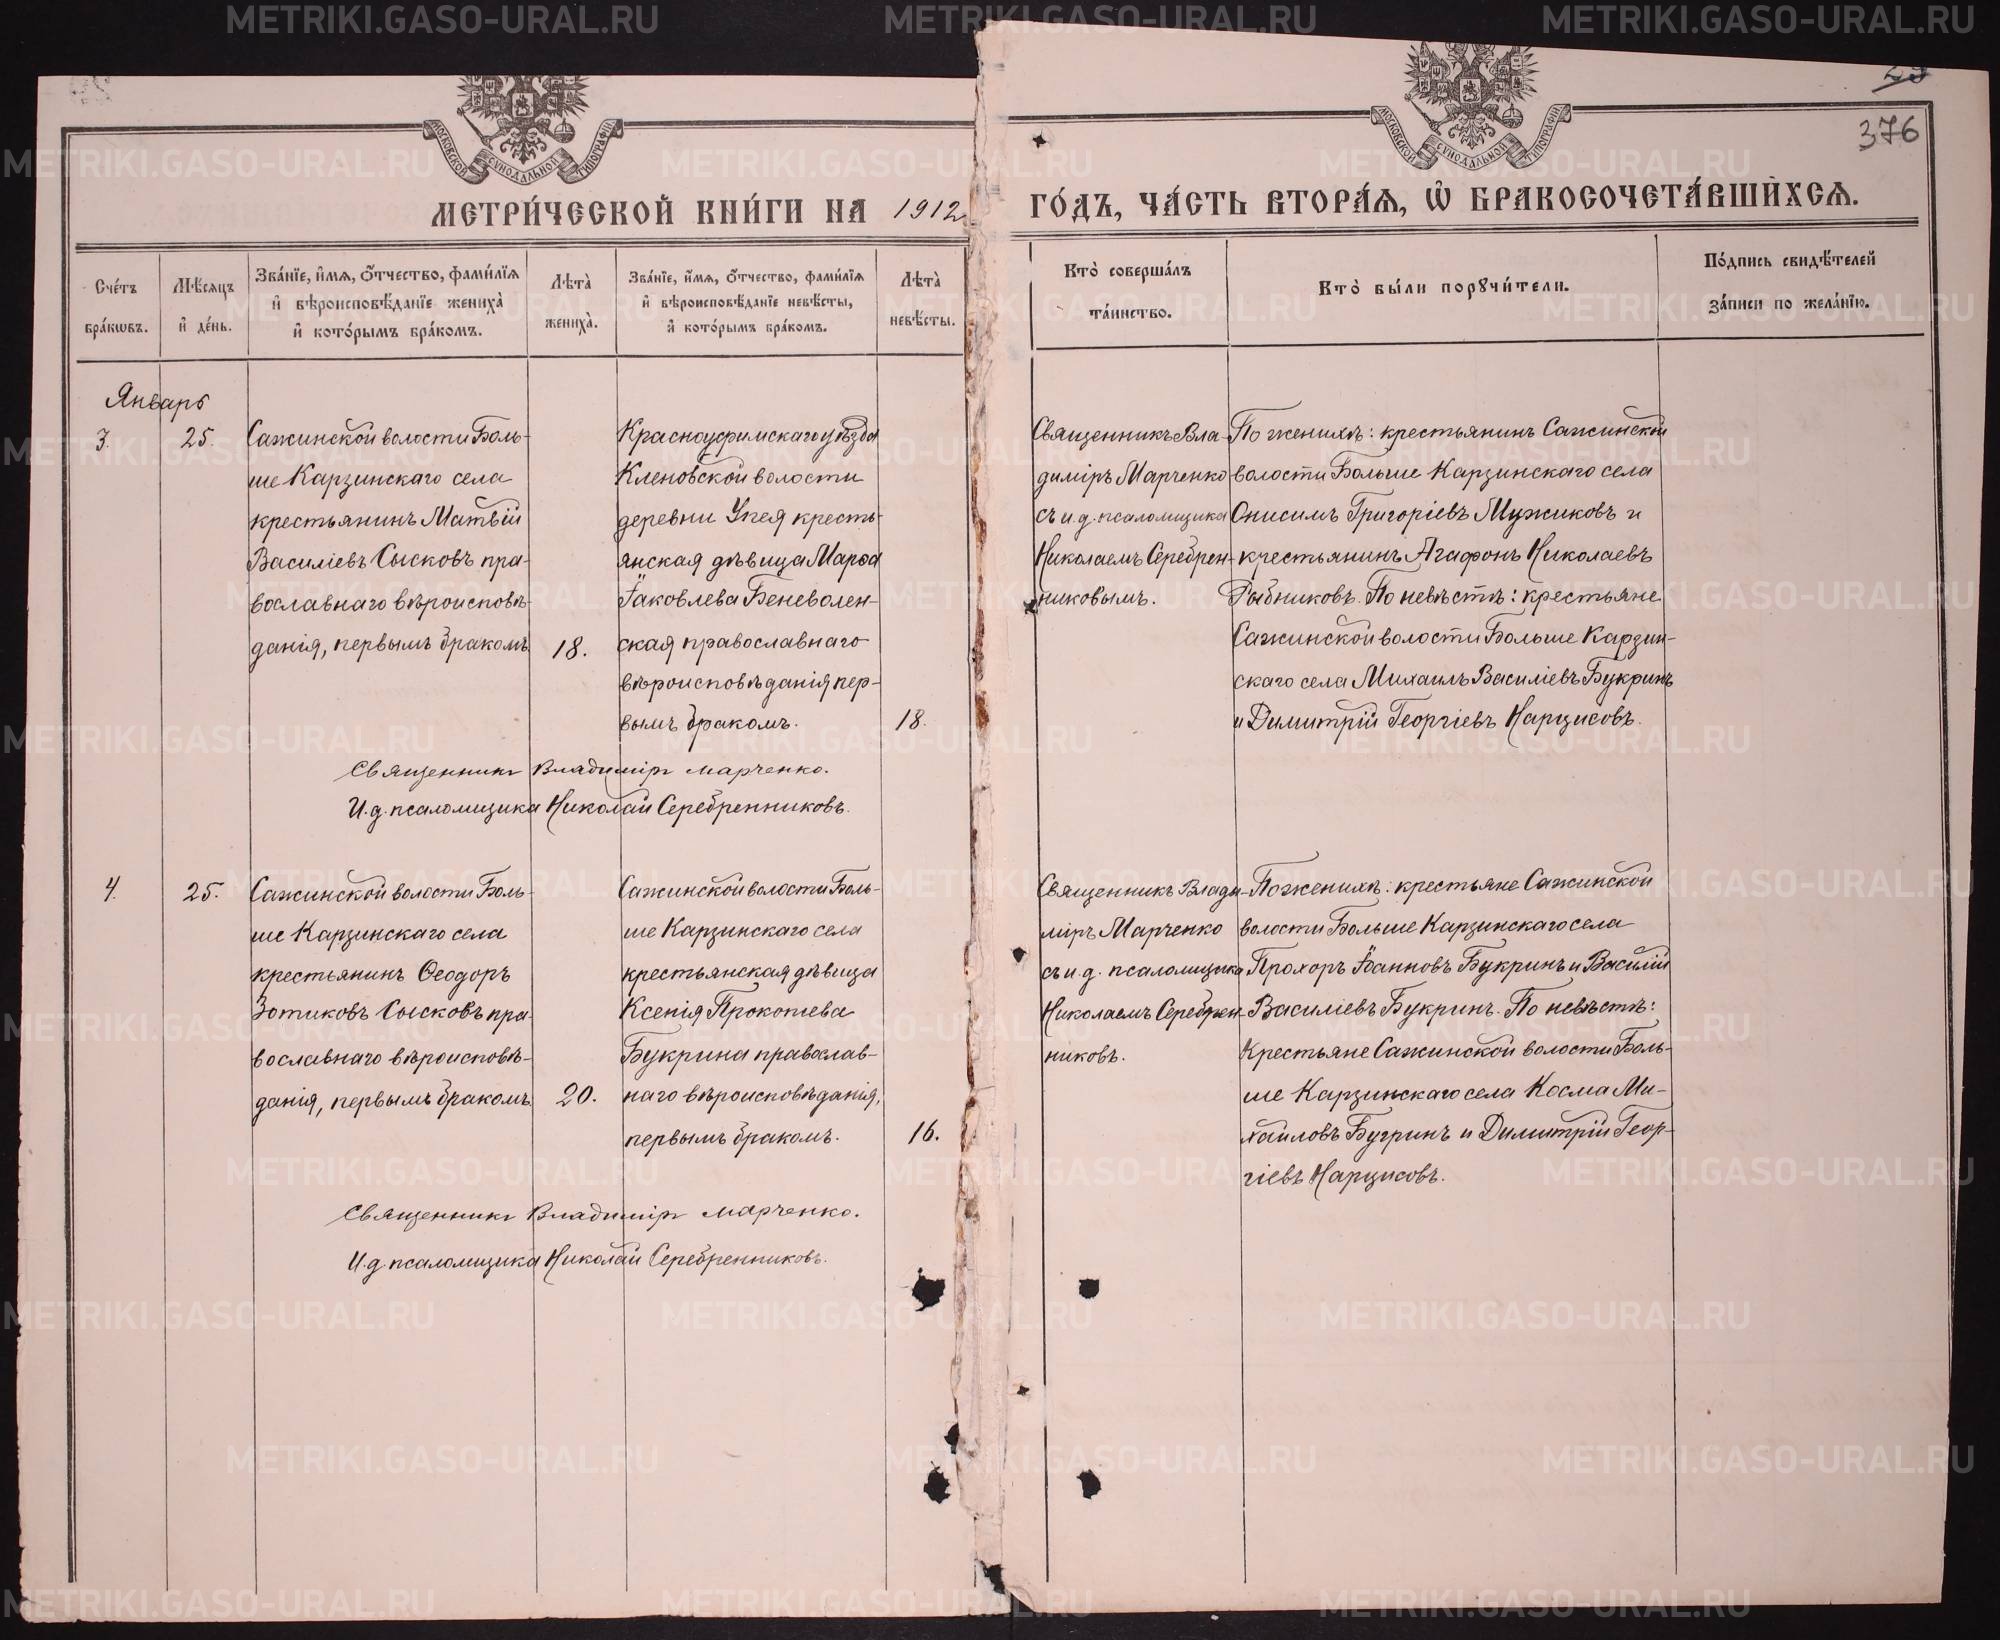 376
МОСКОВСКОЙ СѴНОДАЛЬНОЙ ТИПОГРАФІИ
МОСКОВСКОЙ СѴНОДАЛЬНОЙ ТИПОГРАФІИ
МЕТРИ́ЧЕСКОЙ КНИ́ГИ НА 1912
ГО́ДЪ, ЧА́СТЬ ВТОРА́Ѧ, Ѡ҆ БРАКОСОЧЕТА́ВШИХСѦ.
Сче́тъ
бра́кѡвъ.
Мѣ́сяцъ
и҆ де́нь.
Зва́нїе, и҆́мѧ, ѻ҆́тчество, фами́лїѧ
и҆ вѣроисповѣ́данїе жениха̀
и҆ кото́рымъ бра́комъ.
Лѣта̀
жениха̀.
Зва́нїе, и҆́мѧ, ѻ҆́тчество, фами́лїѧ
и҆ вѣроисповѣ́данїе невѣ́сты,
и҆ кото́рымъ бра́комъ.
Лѣта̀
невѣ́сты.
Кто̀ соверша́лъ
та́инство.
Кто̀ бы́ли порꙋчи́тели.
По́дпись свидѣ́телей
за́писи по жела́нїю.
Январь
3.
25.
Сажинской волости Боль-
ше Карзинскаго села
крестьянинъ Матвій
Василіевъ Сысковъ пра-
вославнаго вѣроисповѣ-
данія, первымъ бракомъ
18.
Красноуфимскаго уѣзда
Кленовской волости
деревни Упея кресть-
янская дѣвица Марѳа
Іаковлева Беневолен-
ская православнаго
вѣроисповѣданія пер-
вымъ бракомъ.
18.
Священникъ Вла-
димiръ Марченко
съ и.д. псаломщика
Николаемъ Серебрен-
никовымъ.
По женихѣ: крестьянинъ Сажинской
волости Больше Карзинскаго села
Онисимъ Григоріевъ Мужиковъ и
крестьянинъ Агафонъ Николаевъ
Рыбниковъ. По невѣстѣ: крестьяне
Сажинской волости Больше Карзин-
скаго села Михаилъ Василіевъ Букринъ
и Димитрій Георгіевъ Нарцисовъ.
Священникъ Владиміръ Марченко.
И.д. псаломщика Николай Серебренниковъ.
4.
25.
Сажинской волости Боль-
ше Карзинскаго села
крестьянинъ Ѳеодоръ
Зотиковъ Сысковъ пра-
вославнаго вѣроисповѣ-
данія, первымъ бракомъ
20.
Сажинской волости Боль-
ше Карзинскаго села
крестьянская дѣвица
Ксенія Прокопіева
Букрина православ-
наго вѣроисповѣданія,
первымъ бракомъ.
16.
Священникъ Влади-
міръ Марченко
съ и.д. псаломщика
Николаемъ Серебрен-
никовъ.
По женихѣ: крестьяне Сажинской
волости Больше Карзинскаго села
Прохоръ Іоанновъ Букринъ и Василій
Василіевъ Букринъ. По невѣстѣ:
Крестьяне Сажинской волости Боль-
ше Карзинскаго села Косма Ми-
хайловъ Бугринъ и Димитрій Геор-
гіевъ Нарцисовъ.
Священникъ Владиміръ Марченко.
И.д. псаломщика Николай Серебренниковъ.
METRIKI.GASO-URAL.RU